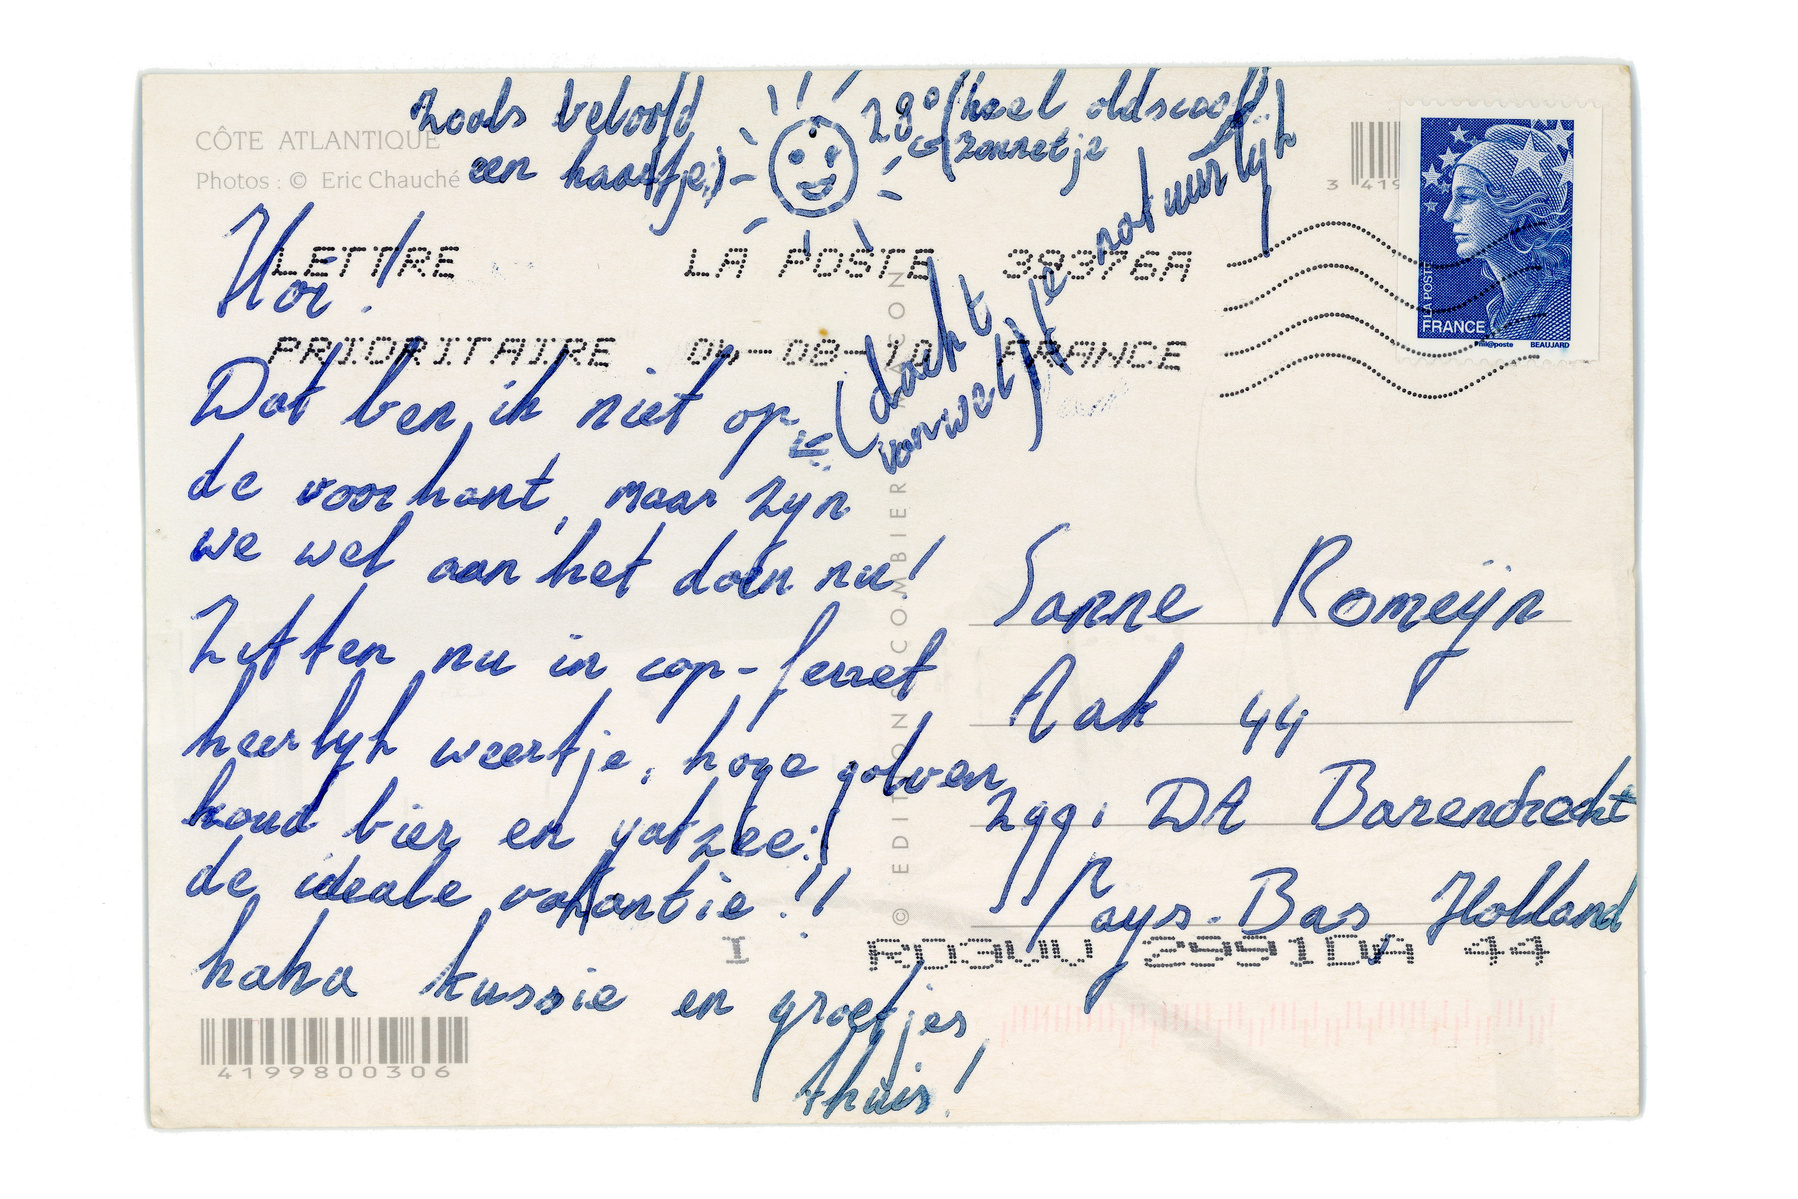 CÔTE ATLANTIQUE
Photos : © Eric Chauché
Zoals beloofd
een kaartje:)
28° (heel oldscool!)
zonnetje
natuurlijk
Hoi!
LETTRE LA POSTE 38376A
PRIORITAIRE 04-08-10 FRANCE
3 419
LA POSTE
FRANCE
Phil@poste BEAUJARD
Dat ben ik niet op
(dacht
van wel)
de voorkant, maar zijn
we wel aan het doen nu!
Zitten nu in cap-ferret
heerlijk weertje, hoge golven
koud bier en yatzee:)
de ideale vakantie!!
haha kussie en groetjes
thuis!
© EDITIONS COMBIER MACON
Sanne Romeijn
Aak 44
2991 DA Barendrecht
Pays-Bas Holland
I RD3UU 2991DA 44
4199800306